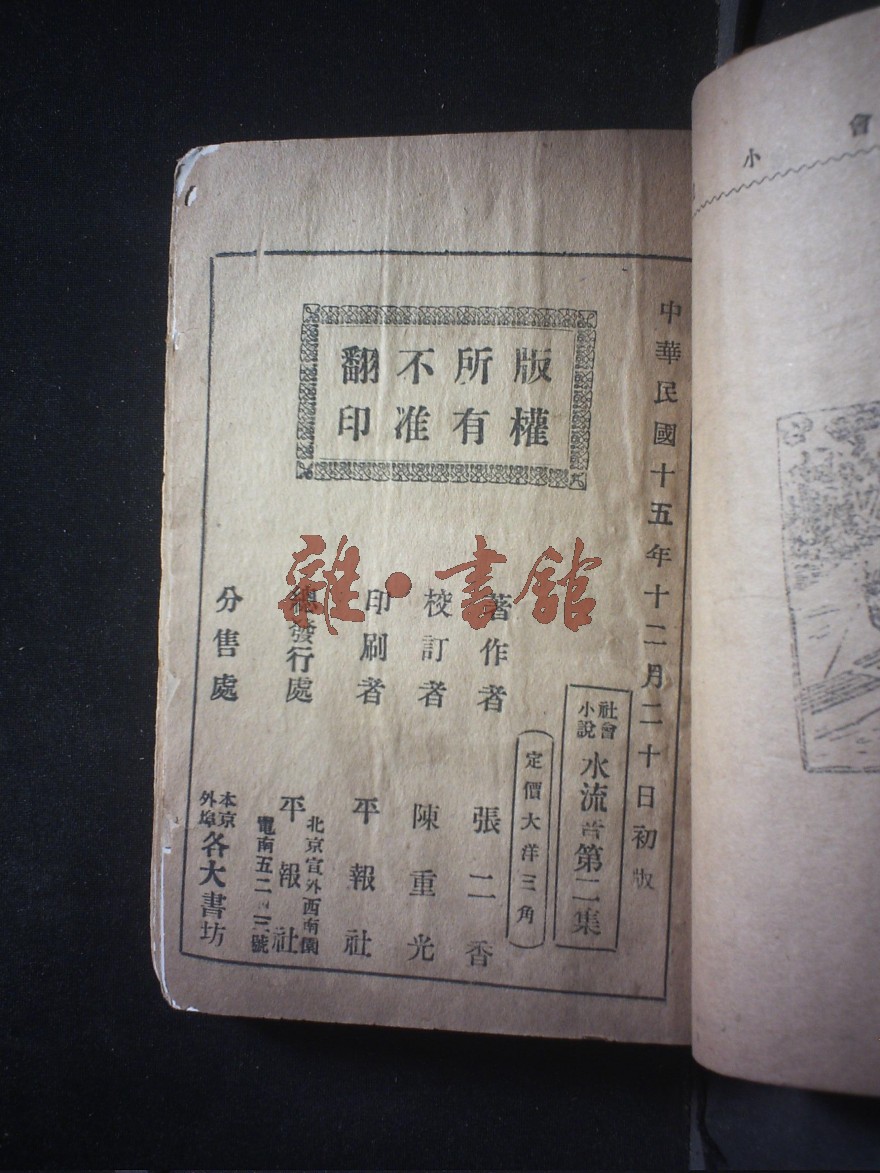 版權
所有
不准
翻印
中華民國十五年十二月二十日初版
社會
小說
水流 第二集
定價大洋三角
著作者 張二香
校訂者 陳重光
印刷者 平報社
總發行處 平報社
北京宣外西南園
電南五二 三號
分售處
本京
外埠
各大書坊
雜·書館
會
小